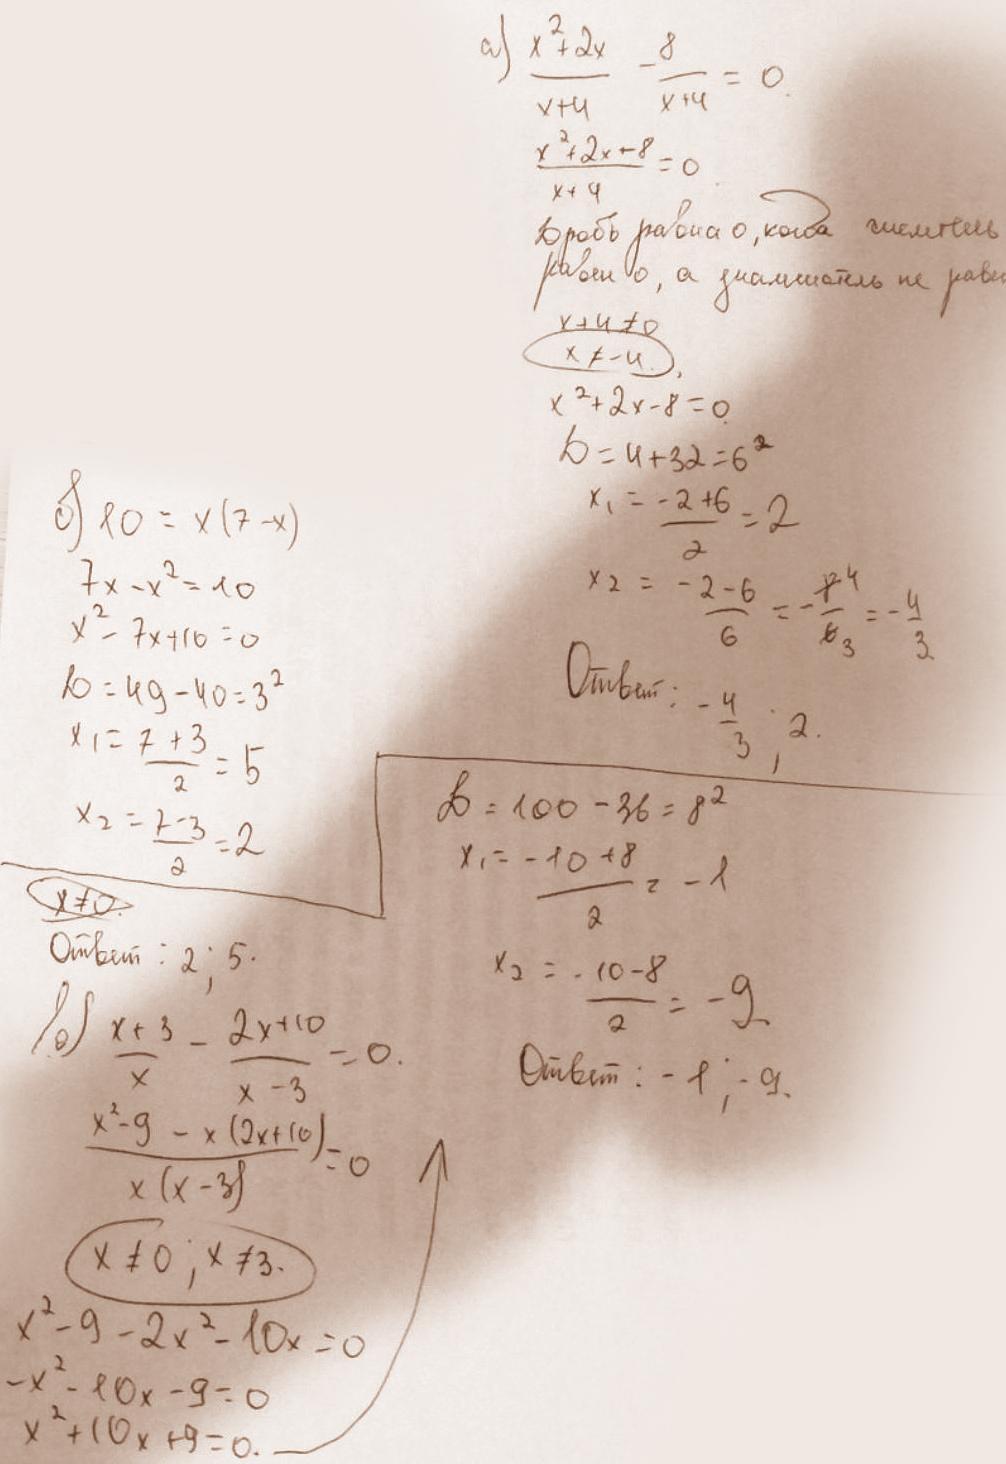 а) (x²+2x)/(x+4) - 8/(x+4) = 0.
(x²+2x-8)/(x+4) = 0
Дробь равна 0, когда числитель
равен 0, а знаменатель не равен
x+4≠0
x≠-4.
x²+2x-8=0
D=4+32=6²
x₁ = (-2+6)/2 = 2
x₂ = (-2-6)/6 = -8⁴/6₃ = -4/3
Ответ: -4/3; 2.
б) 10 = x(7-x)
7x-x²=10
x²-7x+10=0
D=49-40=3²
x₁ = (7+3)/2 = 5
x₂ = (7-3)/2 = 2
x≠0.
Ответ: 2; 5.
в) (x+3)/x - (2x+10)/(x-3) = 0.
(x²-9 - x(2x+10))/(x(x-3)) = 0
x≠0; x≠3.
x²-9-2x²-10x=0
-x²-10x-9=0
x²+10x+9=0.
D=100-36=8²
x₁ = (-10+8)/2 = -1
x₂ = (-10-8)/2 = -9
Ответ: -1; -9.